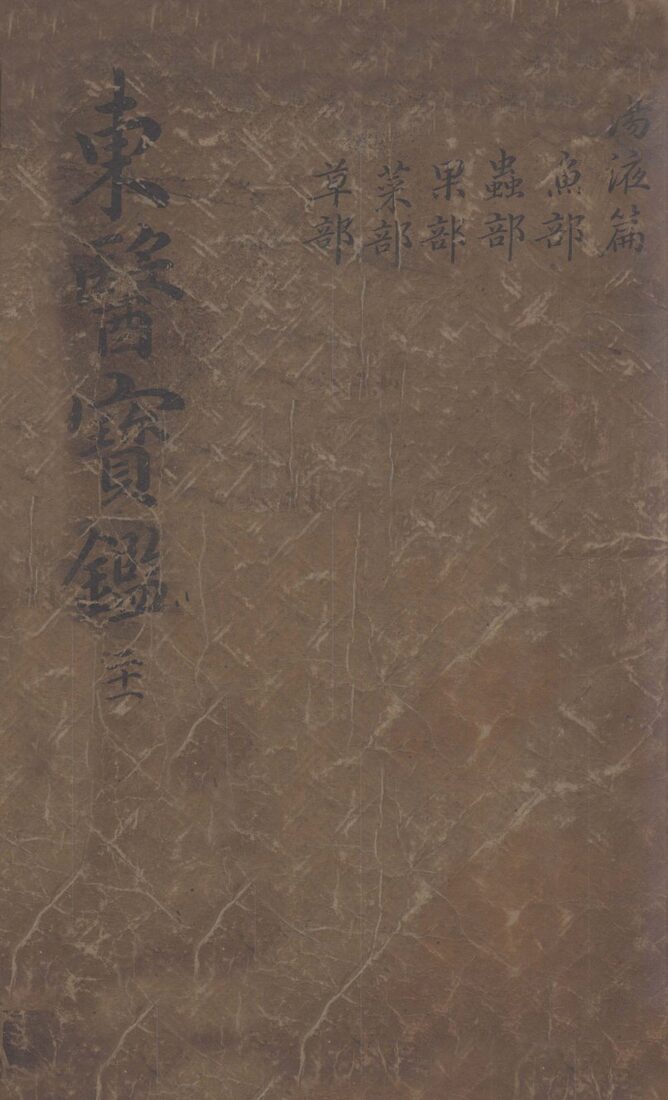 湯液篇
魚部
蟲部
果部
菜部
草部
東醫寶鑑 廿一